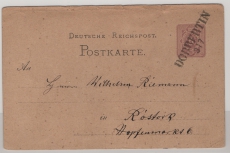 DEUTSCHE REICHSPOST.
POSTKARTE.
DOBBERTIN
An
Herrn Wilhelm Riemann
in Rostock
Hopfenmarkt 6